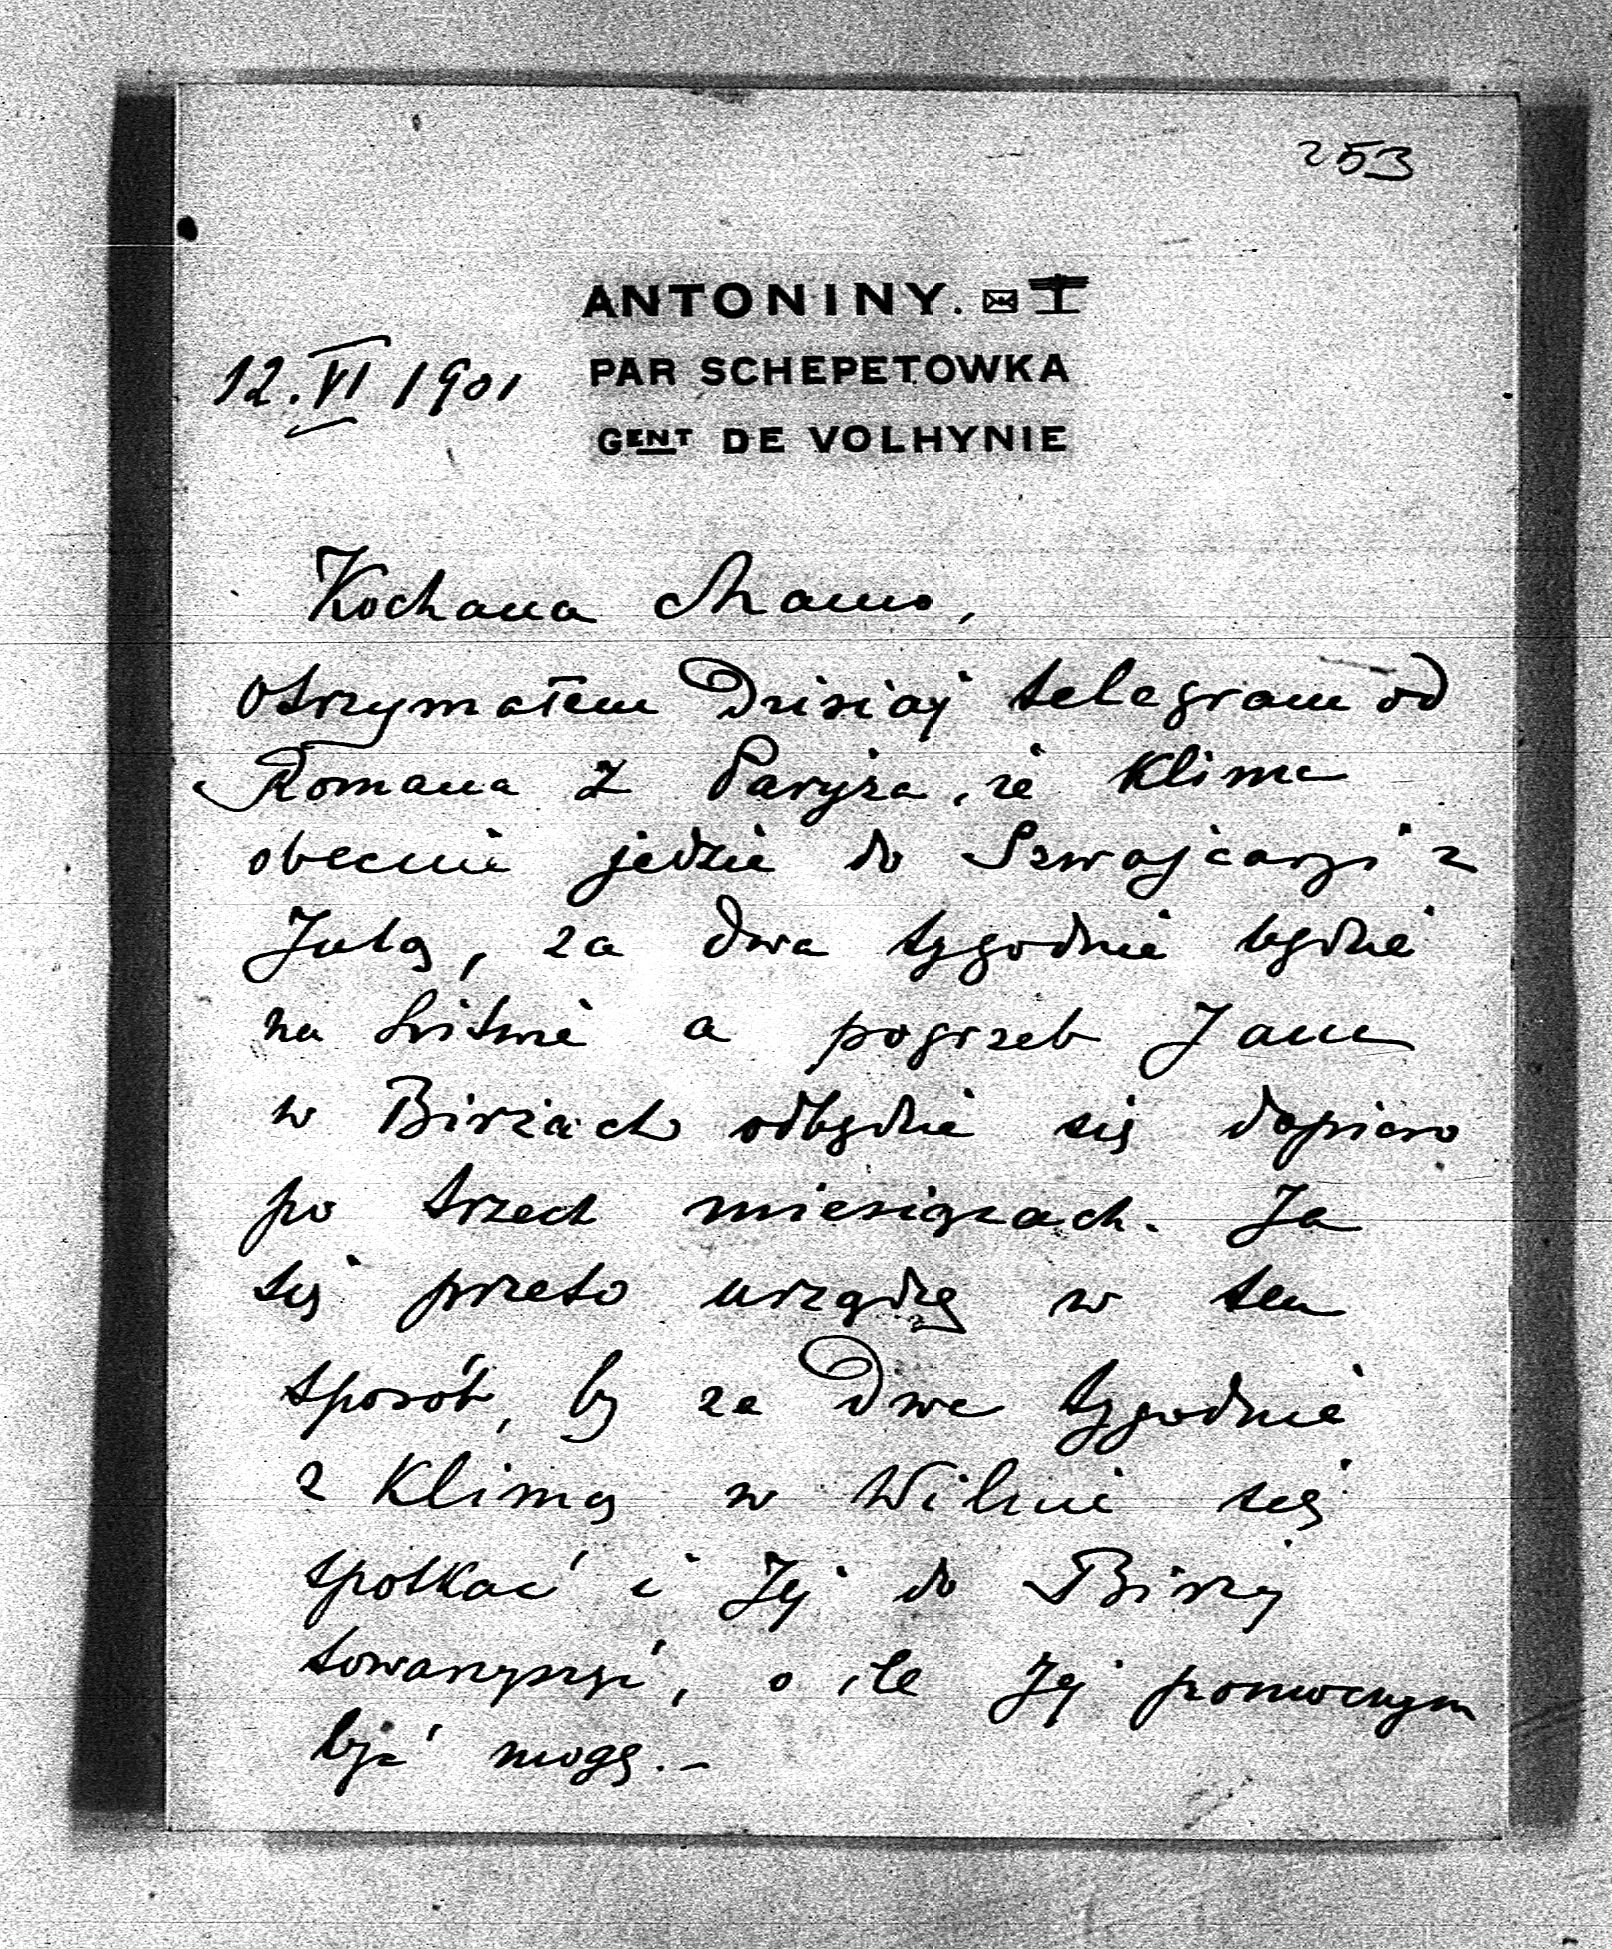 253
ANTONINY.
12.VI 1901
PAR SCHEPETOWKA
GENT DE VOLHYNIE
Kochana Mamo,
otrzymałem Dzisiaj telegram od
Romana z Paryża, że Klima
obecnie jedzie do Szwajcaryi z
Julą, za dwa tygodnie będzie
na Litwie a pogrzeb Jana
w Birżach odbędzie się dopiero
po trzech miesiącach. Ja
się przeto urządzę w ten
sposób, by za Dwa tygodnie
z Klimą w Wilnie się
spotkać i Jej do Birży
towarzyszyć, o ile Jej pomocnym
być mogę.–